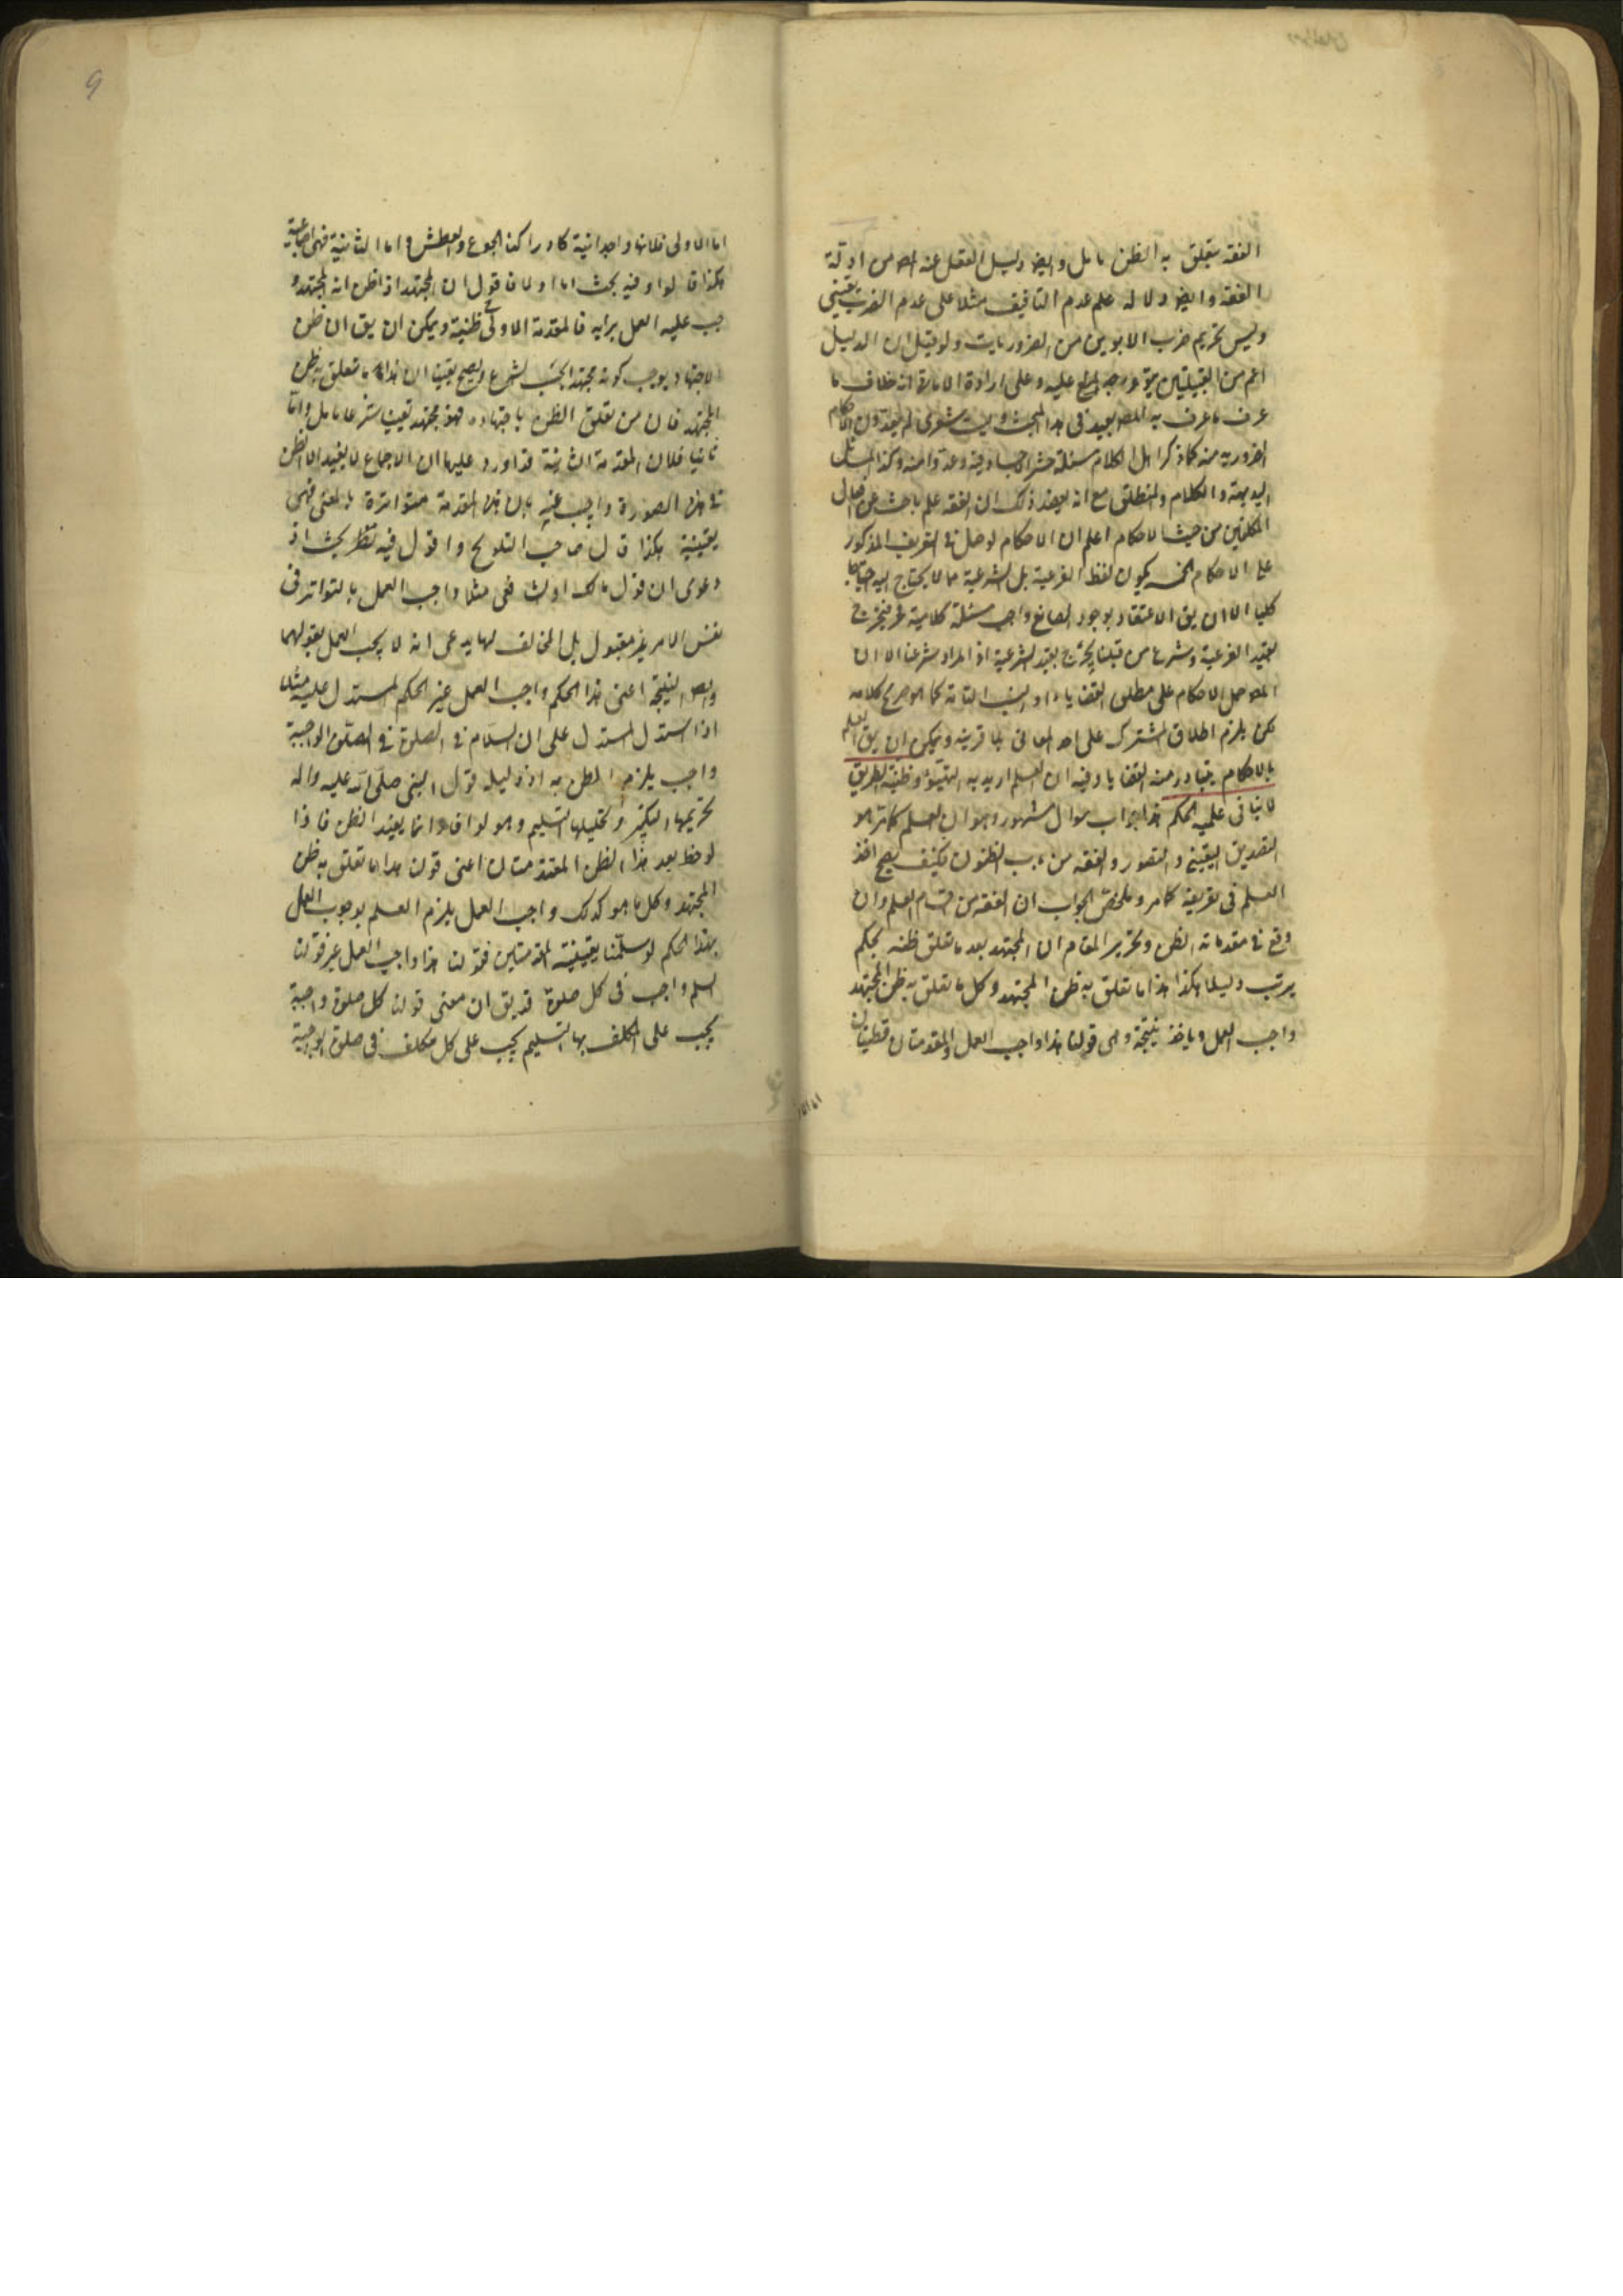 الفقه يتعلق به الظن تامل وايض دليل العقل عنه المص من ادلة
الفقه وايض دلالة علم عدم التافيف مثلا على عدم الضرب يقيني
وليس تحريم ضرب الابوين من الضروريات ولو قيل ان الدليل
اعم من القبيلتين عليه وعلى ارادة الامارة انه خلاف ما
عرف ما عرف به المص بعيد في هذا المبحث وليت شعري لم يعدون الاحكام
الضرورية منه كما ذكر اهل الكلام مسئلة حشر الاجساد فيه وعدوا منه وكذا المسائل
البديهية والكلام والمنطق مع انه بعد ذلك ان الفقه علم باحث عن افعال
المكلفين من حيث الاحكام اعلم ان الاحكام لو حمل في التعريف المذكور
على الاحكام الخمسة يكون لفظ الفرعية بل الشرعية مما لا يحتاج اليه احتياجا
كليا الا ان يق الاعتقاد بوجود الصانع واجب مسئلة كلامية فيخرج
بقيد الفرعية وشرع من قبلنا يخرج بقيد الشرعية اذ المراد شرعنا الا ان
المص حمل الاحكام على مطلق القضايا او النسب التامة كما هو صريح كلامه
لكن يلزم اطلاق المشترك على احد المعاني بلا قرينة ويمكن ان يق العلم
بالاحكام يتبادر منه القضايا وفيه ان العلم اريد به التهيؤ وظنية الطريق
لا ينافي علمية الحكم هذا جواب سوال مشهور وهو ان العلم كما مر هو
التصديق اليقيني والتصور والفقه من باب الظنون فكيف يصح اخذ
العلم في تعريفه كما مر وملخص الجواب ان الفقه من اقسام العلم وان
وقع في مقدماته الظن وتحرير المقام ان المجتهد بعد ما تعلق ظنه بحكم
يرتب دليلا هكذا هذا ما تعلق به ظن المجتهد وكل ما تعلق به ظن المجتهد
واجب العمل وياخذ نتيجة وهي قولنا هذا واجب العمل والمقدمتان قطعيتان
9
اما الاولى فلانها وجدانية كادراكنا الجوع والعطش واما الثانية فهي اجماعية
هكذا قالوا وفيه بحث اما اولا فاقول ان المجتهد اذا ظن انه المجتهد و
يجب عليه العمل برايه فالمقدمة الاولى ظنية ويمكن ان يق ان ظن
الاجتهاد يوجب كونه مجتهدا بحسب الشرع ويصح يقينا ان هذا ما تعلق به ظن
المجتهد فان من تعلق الظن باجتهاده فهو مجتهد يقينا شرعا تامل واما
ثانيا فلان المقدمة الثانية قد اورد عليها ان الاجماع لا يفيد الا الظن
في هذه الصورة واجيب عنه بان هذه المقدمة متواترة بالمعنى فهي
يقينية هكذا قال صاحب التلويح واقول فيه نظر بحث اذ
دعوى ان قول مالك او الشافعي مثلا واجب العمل بالتواتر في
نفس الامر غير مقبول بل المخالف لهما يدعى انه لا يجب العمل بقولهما
وايض النتيجة اعنى هذا الحكم واجب العمل غير الحكم المستدل عليه مثلا
اذا استدل المستدل على ان السلام في الصلوة في الصلوة الواجبة
واجب يلزم الظن به اذ دليله قول النبي صلى الله عليه واله
تحريمها التكبير وتحليلها التسليم وهو لو افاد انما يفيد الظن فاذا
لوحظ بعد هذا الظن المقدمتان اعني قولنا هذا ما تعلق به ظن
المجتهد وكل ما هو كذلك واجب العمل يلزم العلم بوجوب العمل
بهذا الحكم لو سلمنا يقينية المقدمتين فقولنا هذا واجب العمل غير قولنا
السلم واجب في كل صلوة قد يق ان معنى قولنا كل صلوة واجبة
يجب على المكلف بها التسليم يجب على كل مكلف في صلوة الواجبة